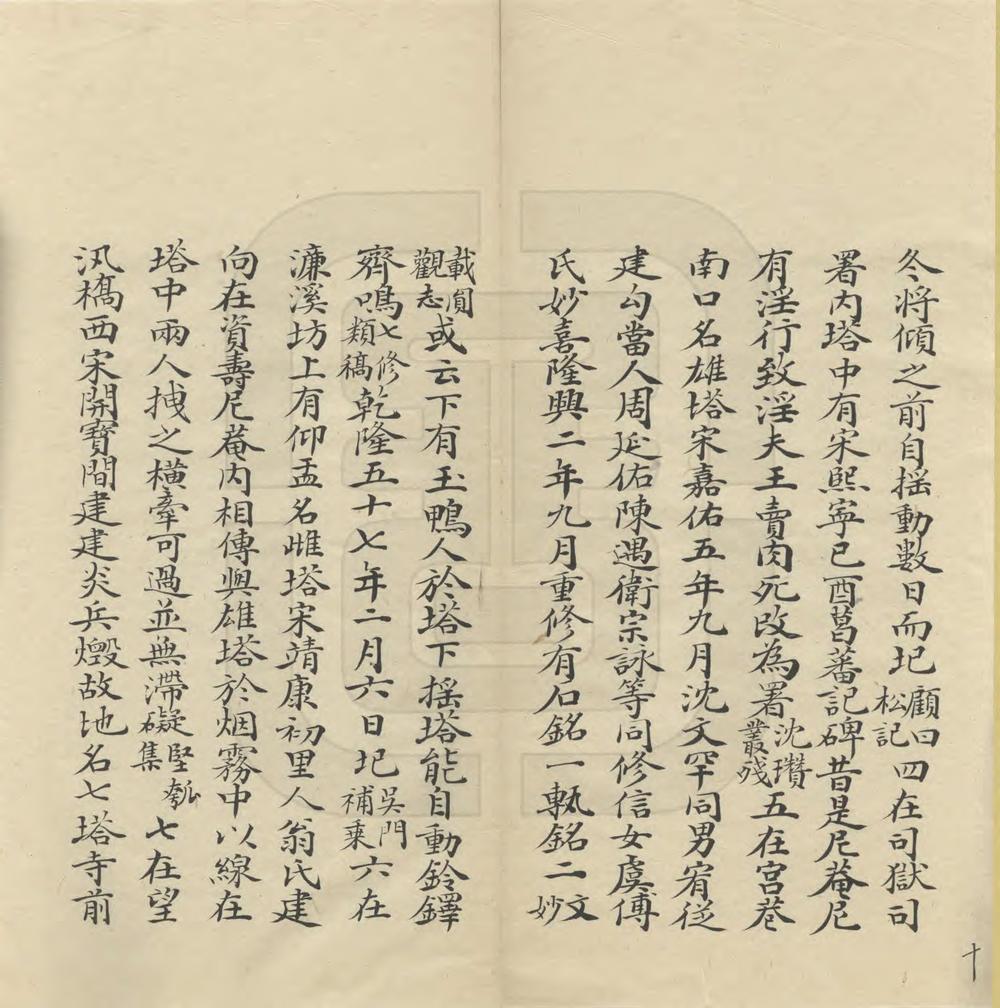 冬將傾之前自揺動數日而圮顧曰松記四在司獄司
署内塔中有宋熙寧己酉葛蕃記碑昔是尼菴尼
有淫行致淫夫王賣肉死改為署沈瓚叢殘五在宫巷
南口名雄塔宋嘉佑五年九月沈文罕同男宥従
建勾當人周延佑陳遇衛宗詠等同修信女虞傅
氏妙喜隆興二年九月重修有石銘一甎銘二文妙
載圓觀志或云下有玉鴨人於塔下揺塔能自動鈴鐸
齊鳴七修類稿乾隆五十七年二月六日圮吳門補乘六在
濂溪坊上有仰盂名雌塔宋靖康初里人翁氏建
向在資壽尼菴内相傳與雄塔於烟霧中以線在
塔中兩人拽之橫牽可過並無滯礙堅瓠集七在望
汛橋西宋開寶間建建炎兵燬故地名七塔寺前
十